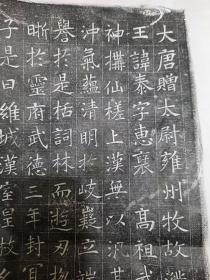 大唐贈太尉雍州牧故
王諱泰字惠褒 高祖武
神仙槎上漢無以汎其
沖氣蘊清明於岐嶷立
譽於是括詞林而遊刃
晰於靈府武德三年封宜
子是曰維城漢室皇